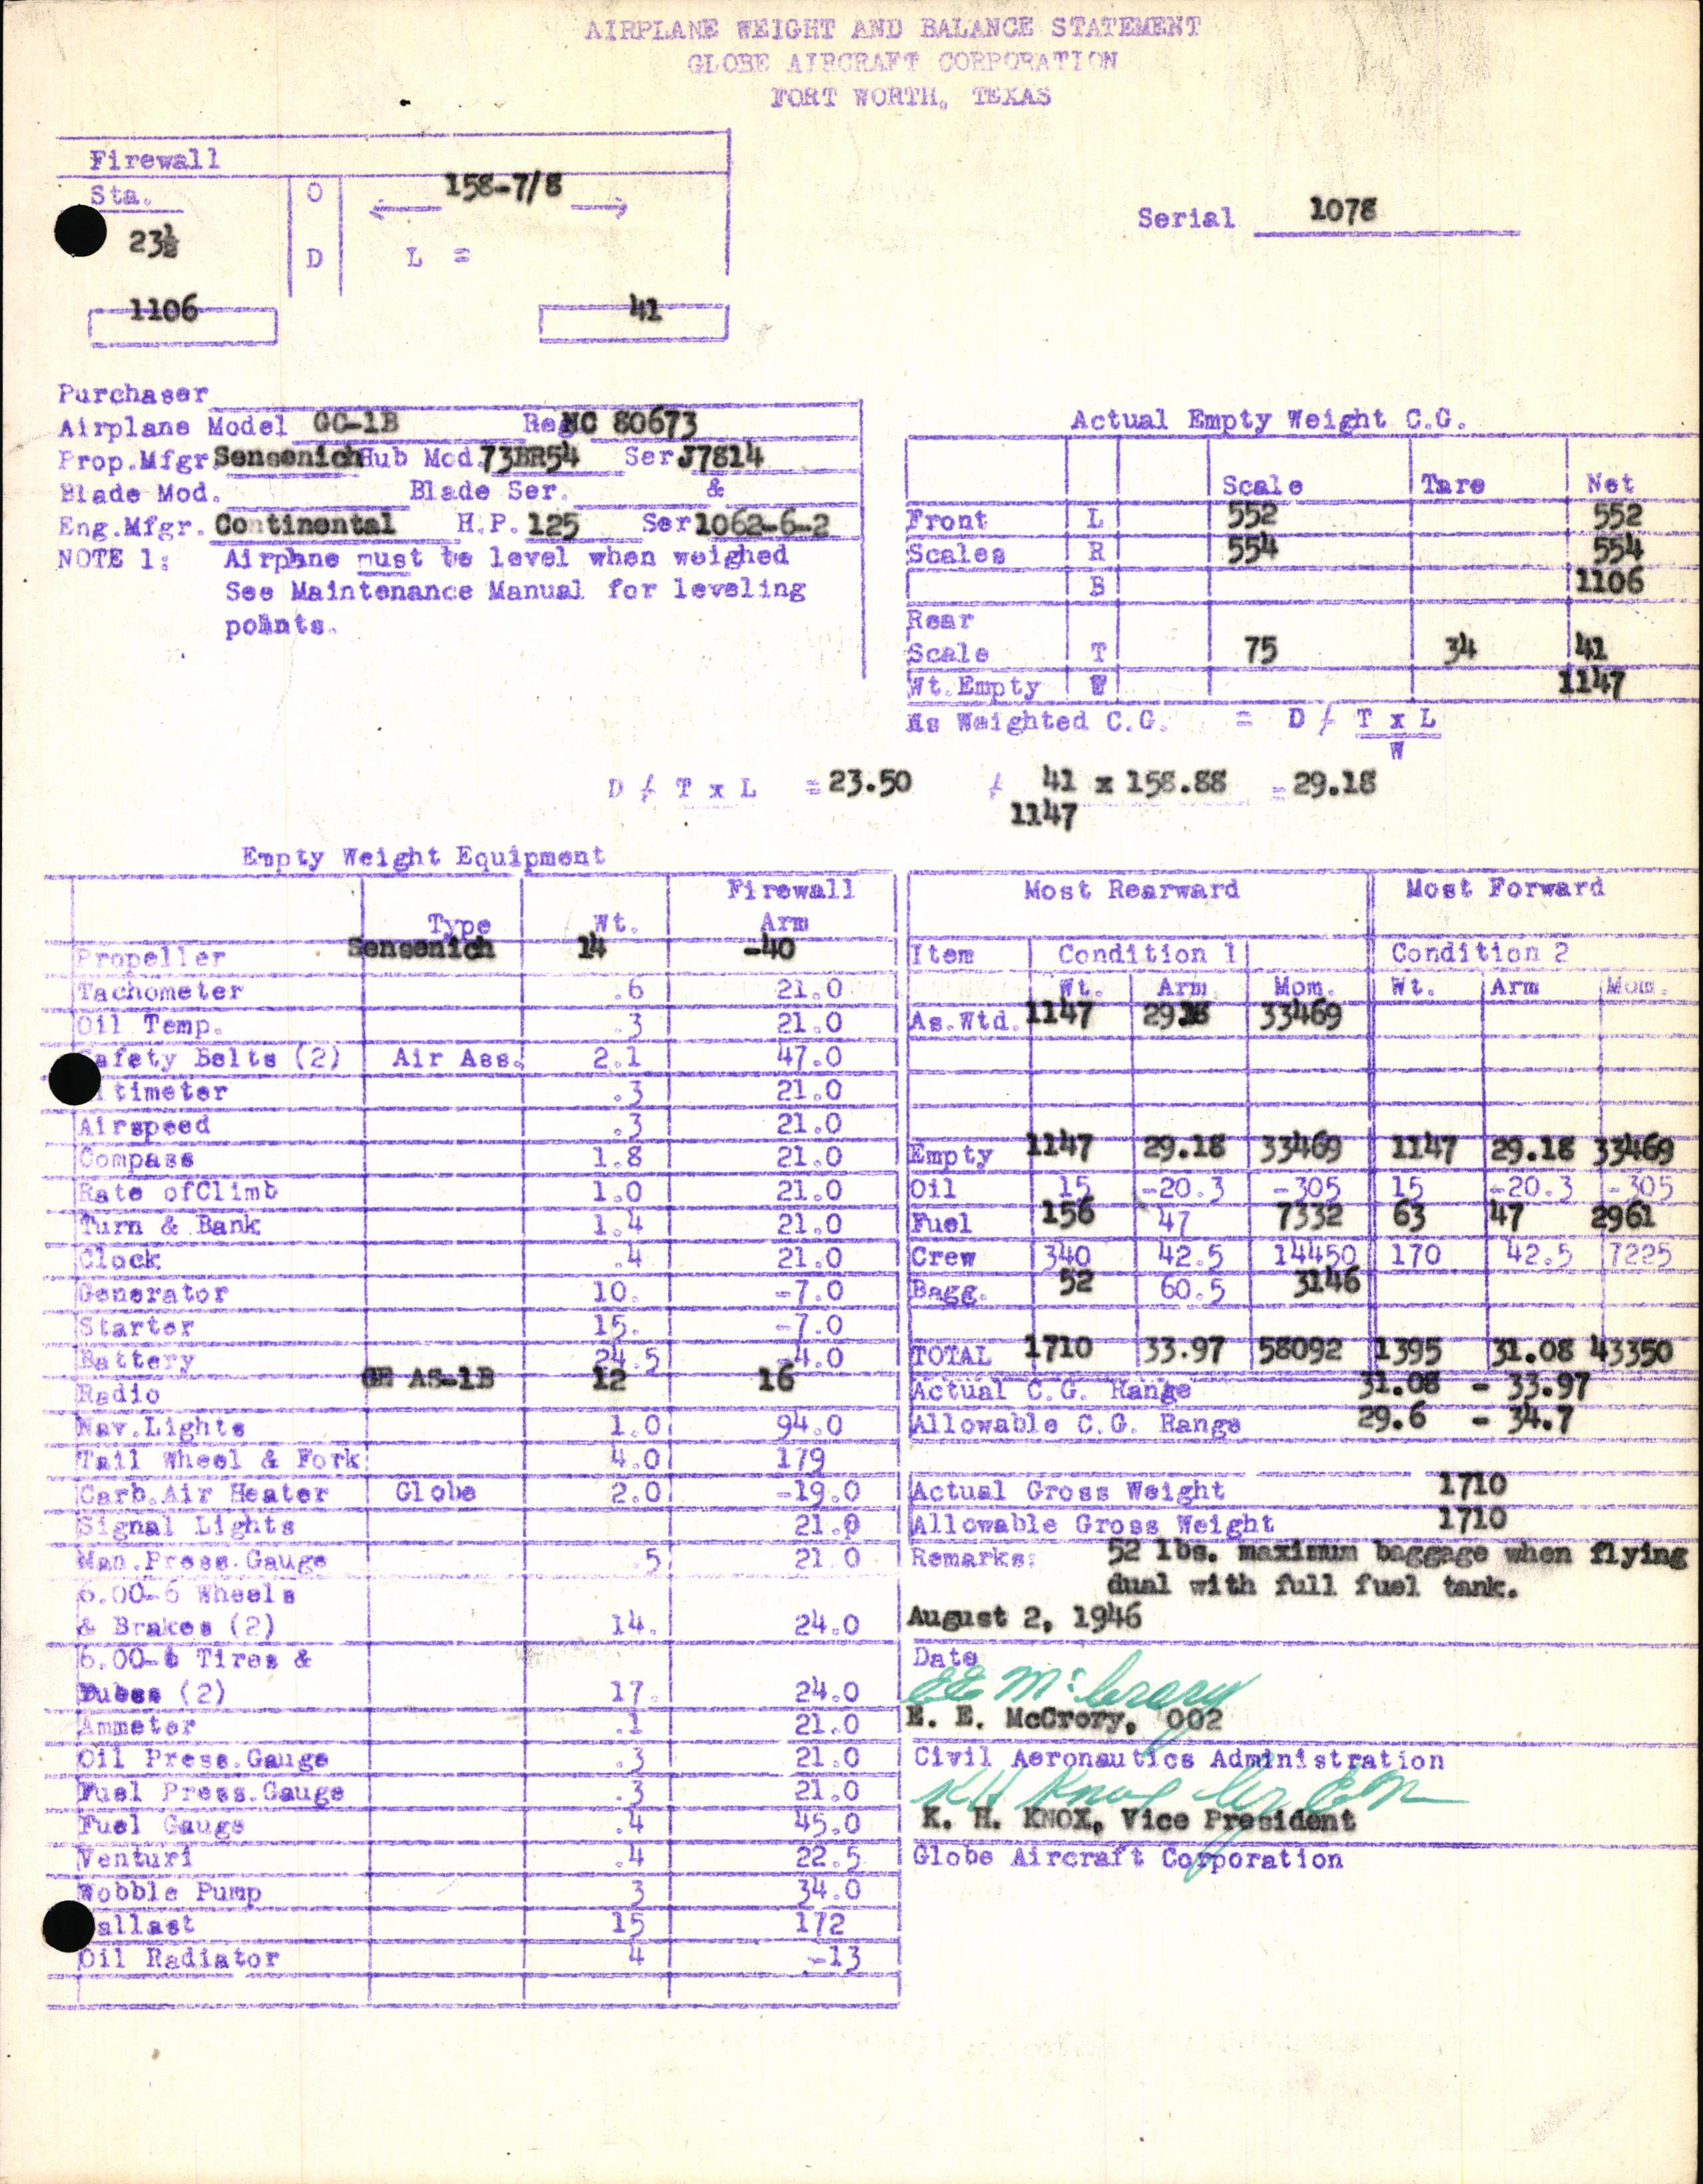 AIRPLANE WEIGHT AND BALANCE STATEMENT
GLOBE AIRCRAFT CORPORATION
FORT WORTH, TEXAS
Firewall
Sta. O 158-7/8
23½ D L =
Serial 1078
1106 41
Purchaser
Airplane Model GC-1B Reg NC 80673
Prop.Mfgr. Sensenich Hub Mod. 73BR54 Ser J7814
Blade Mod. Blade Ser. &
Eng.Mfgr. Continental H.P. 125 Ser 1062-6-2
NOTE 1: Airplane must be level when weighed
See Maintenance Manual for leveling
points.
Actual Empty Weight C.G.
Scale Tare Net
Front L 552 552
Scales R 554 554
B 1106
Rear
Scale T 75 34 41
Wt.Empty W 1147
As Weighted C.G. = D / T x L
W
D / T x L = 23.50 / 41 x 158.88 = 29.18
1147
Empty Weight Equipment
Type Wt. Firewall Arm
Propeller Sensenich 14 -40
Tachometer .6 21.0
Oil Temp. .3 21.0
Safety Belts (2) Air Ass. 2.1 47.0
ltimeter .3 21.0
Airspeed .3 21.0
Compass 1.8 21.0
Rate ofClimb 1.0 21.0
Turn & Bank 1.4 21.0
Clock .4 21.0
Generator 10. -7.0
Starter 15. -7.0
Battery 24.5 -4.0
Radio GE AS-1B 12 16
Nav.Lights 1.0 94.0
Tail Wheel & Fork 4.0 179
Carb.Air Heater Globe 2.0 -19.0
Signal Lights 21.0
Man.Press.Gauge .5 21.0
6.00-6 Wheels
& Brakes (2) 14. 24.0
6.00-6 Tires &
Tubes (2) 17. 24.0
Ammeter .1 21.0
Oil Press.Gauge .3 21.0
Fuel Press.Gauge .3 21.0
Fuel Gauge .4 45.0
Venturi .4 22.5
Wobble Pump 3 34.0
allast 15 172
Oil Radiator 4 -13
Most Rearward Most Forward
Item Condition 1 Condition 2
Wt. Arm Mom. Wt. Arm Mom.
As.Wtd. 1147 29.18 33469
Empty 1147 29.18 33469 1147 29.18 33469
Oil 15 -20.3 -305 15 -20.3 -305
Fuel 156 47 7332 63 47 2961
Crew 340 42.5 14450 170 42.5 7225
Bagg. 52 60.5 3146
TOTAL 1710 33.97 58092 1395 31.08 43350
Actual C.G. Range 31.08 - 33.97
Allowable C.G. Range 29.6 - 34.7
Actual Gross Weight 1710
Allowable Gross Weight 1710
Remarks: 52 lbs. maximum baggage when flying
dual with full fuel tank.
August 2, 1946
Date
EE McCrory
E. E. McCrory, 002
Civil Aeronautics Administration
KH Knox
K. H. KNOX, Vice President
Globe Aircraft Corporation